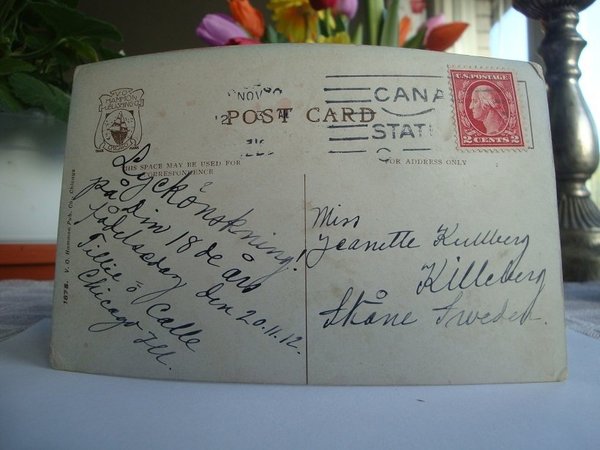 V.O. HAMMON
PUBLISHING CO.
CHICAGO
NOV
12
CANA
STATI
C
U.S. POSTAGE
2 CENTS 2
POST CARD
THIS SPACE MAY BE USED FOR
CORRESPONDENCE
FOR ADDRESS ONLY
1875. V. O. Hammon Pub. Co., Chicago
Lyckönskning!
på din 18de års
födelsedag den 20.11.12.
Tillie o Calle
Chicago Ill.
Miss
Jeanette Kullberg
Killeberg
Skåne Sweden.